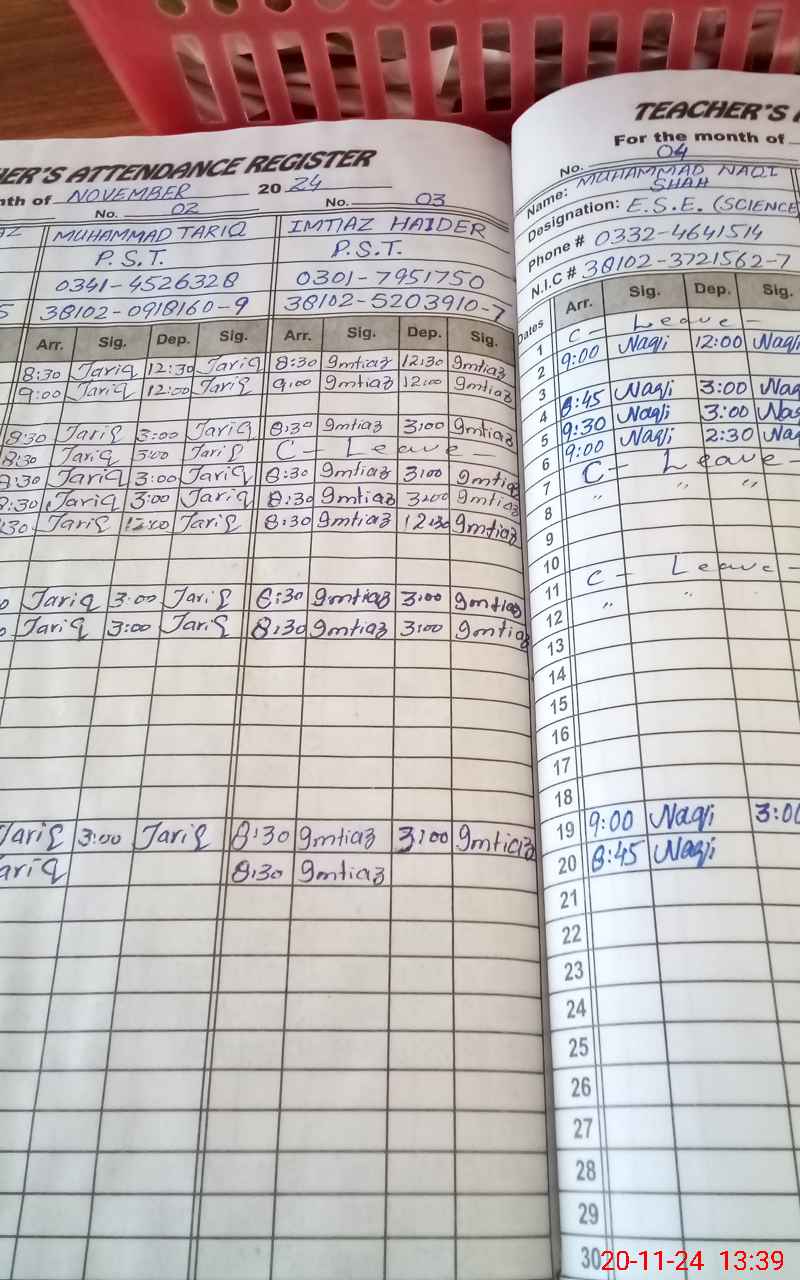 HER'S ATTENDANCE REGISTER
nth of NOVEMBER 20 24
No. 02 No. 03
MUHAMMAD TARIQ IMTIAZ HAIDER
P.S.T. P.S.T.
0341-4526328 0301-7951750
5 38102-0918160-9 38102-5203910-7
Arr. Sig. Dep. Sig. Arr. Sig. Dep. Sig.
8:30 Tariq 12:30 Tariq 8:30 Imtiaz 12:30 Imtiaz
9:00 Tariq 12:00 Tariq 9:00 Imtiaz 12:00 Imtiaz
8:30 Tariq 3:00 Tariq 8:30 Imtiaz 3:00 Imtiaz
8:30 Tariq 3:00 Tariq C - Leave -
8:30 Tariq 3:00 Tariq 8:30 Imtiaz 3:00 Imtiaz
8:30 Tariq 3:00 Tariq 8:30 Imtiaz 3:00 Imtiaz
:30 Tariq 12:00 Tariq 8:30 Imtiaz 12:30 Imtiaz
0 Tariq 3:00 Tariq 8:30 Imtiaz 3:00 Imtiaz
0 Tariq 3:00 Tariq 8:30 Imtiaz 3:00 Imtiaz
Tariq 3:00 Tariq 8:30 Imtiaz 3:00 Imtiaz
ariq 8:30 Imtiaz
TEACHER'S
For the month of
No. 04
Name: MUHAMMAD NAQI
SHAH
Designation: E.S.E. (SCIENCE
Phone # 0332-4641514
N.I.C # 38102-3721562-7
Dates Arr. Sig. Dep. Sig.
1 C - Leave -
2 9:00 Naqi 12:00 Naqi
3
4 8:45 Naqi 3:00 Naq
5 9:30 Naqi 3:00 Naq
6 9:00 Naqi 2:30 Na
7 C - Leave -
8 " " "
9
10
11 C - Leave -
12 " "
13
14
15
16
17
18
19 9:00 Naqi 3:00
20 8:45 Naqi
21
22
23
24
25
26
27
28
29
30
20-11-24 13:39